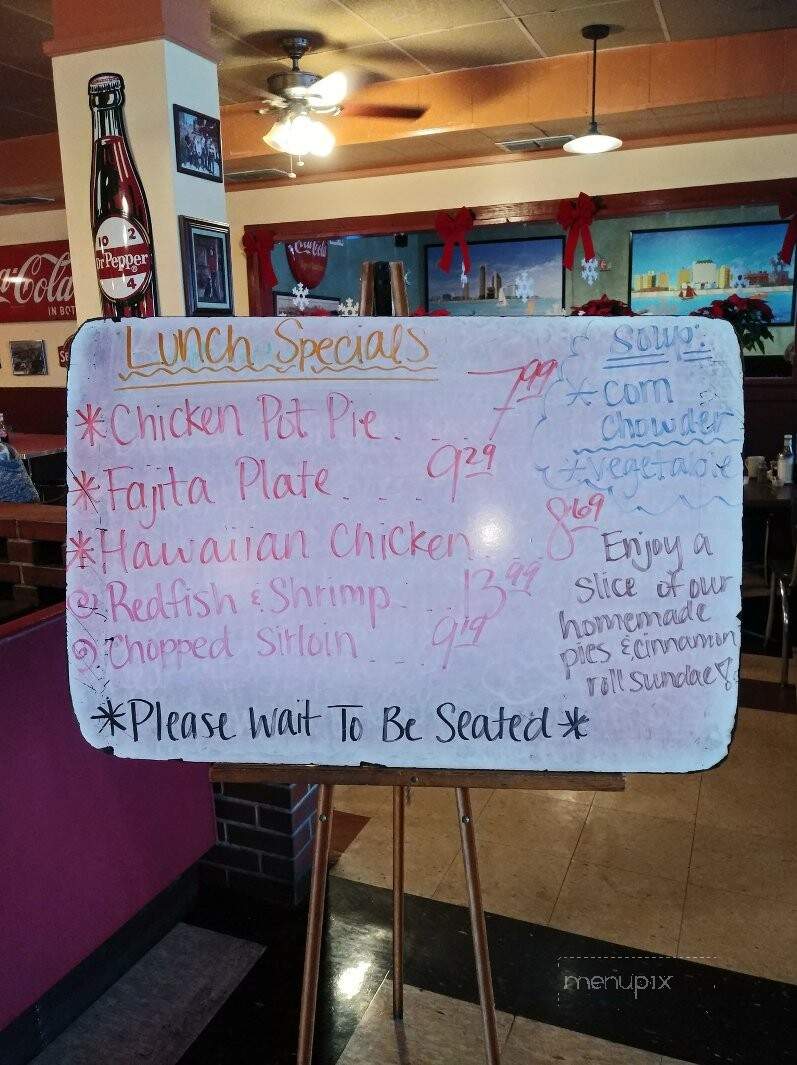 Lunch Specials
*Chicken Pot Pie. . . . 7.99
*Fajita Plate. . . . 9.29
*Hawaiian Chicken . . 8.69
Redfish & Shrimp. . . 13.99
Chopped Sirloin . . . 9.19
Soup:
*Corn
Chowder
*Vegetable
Enjoy a
slice of our
homemade
pies & cinnamon
roll sundae
*Please Wait To Be Seated*
10 2
Dr Pepper
4
Coca-Cola
IN BOT
Coca-Cola
menupix